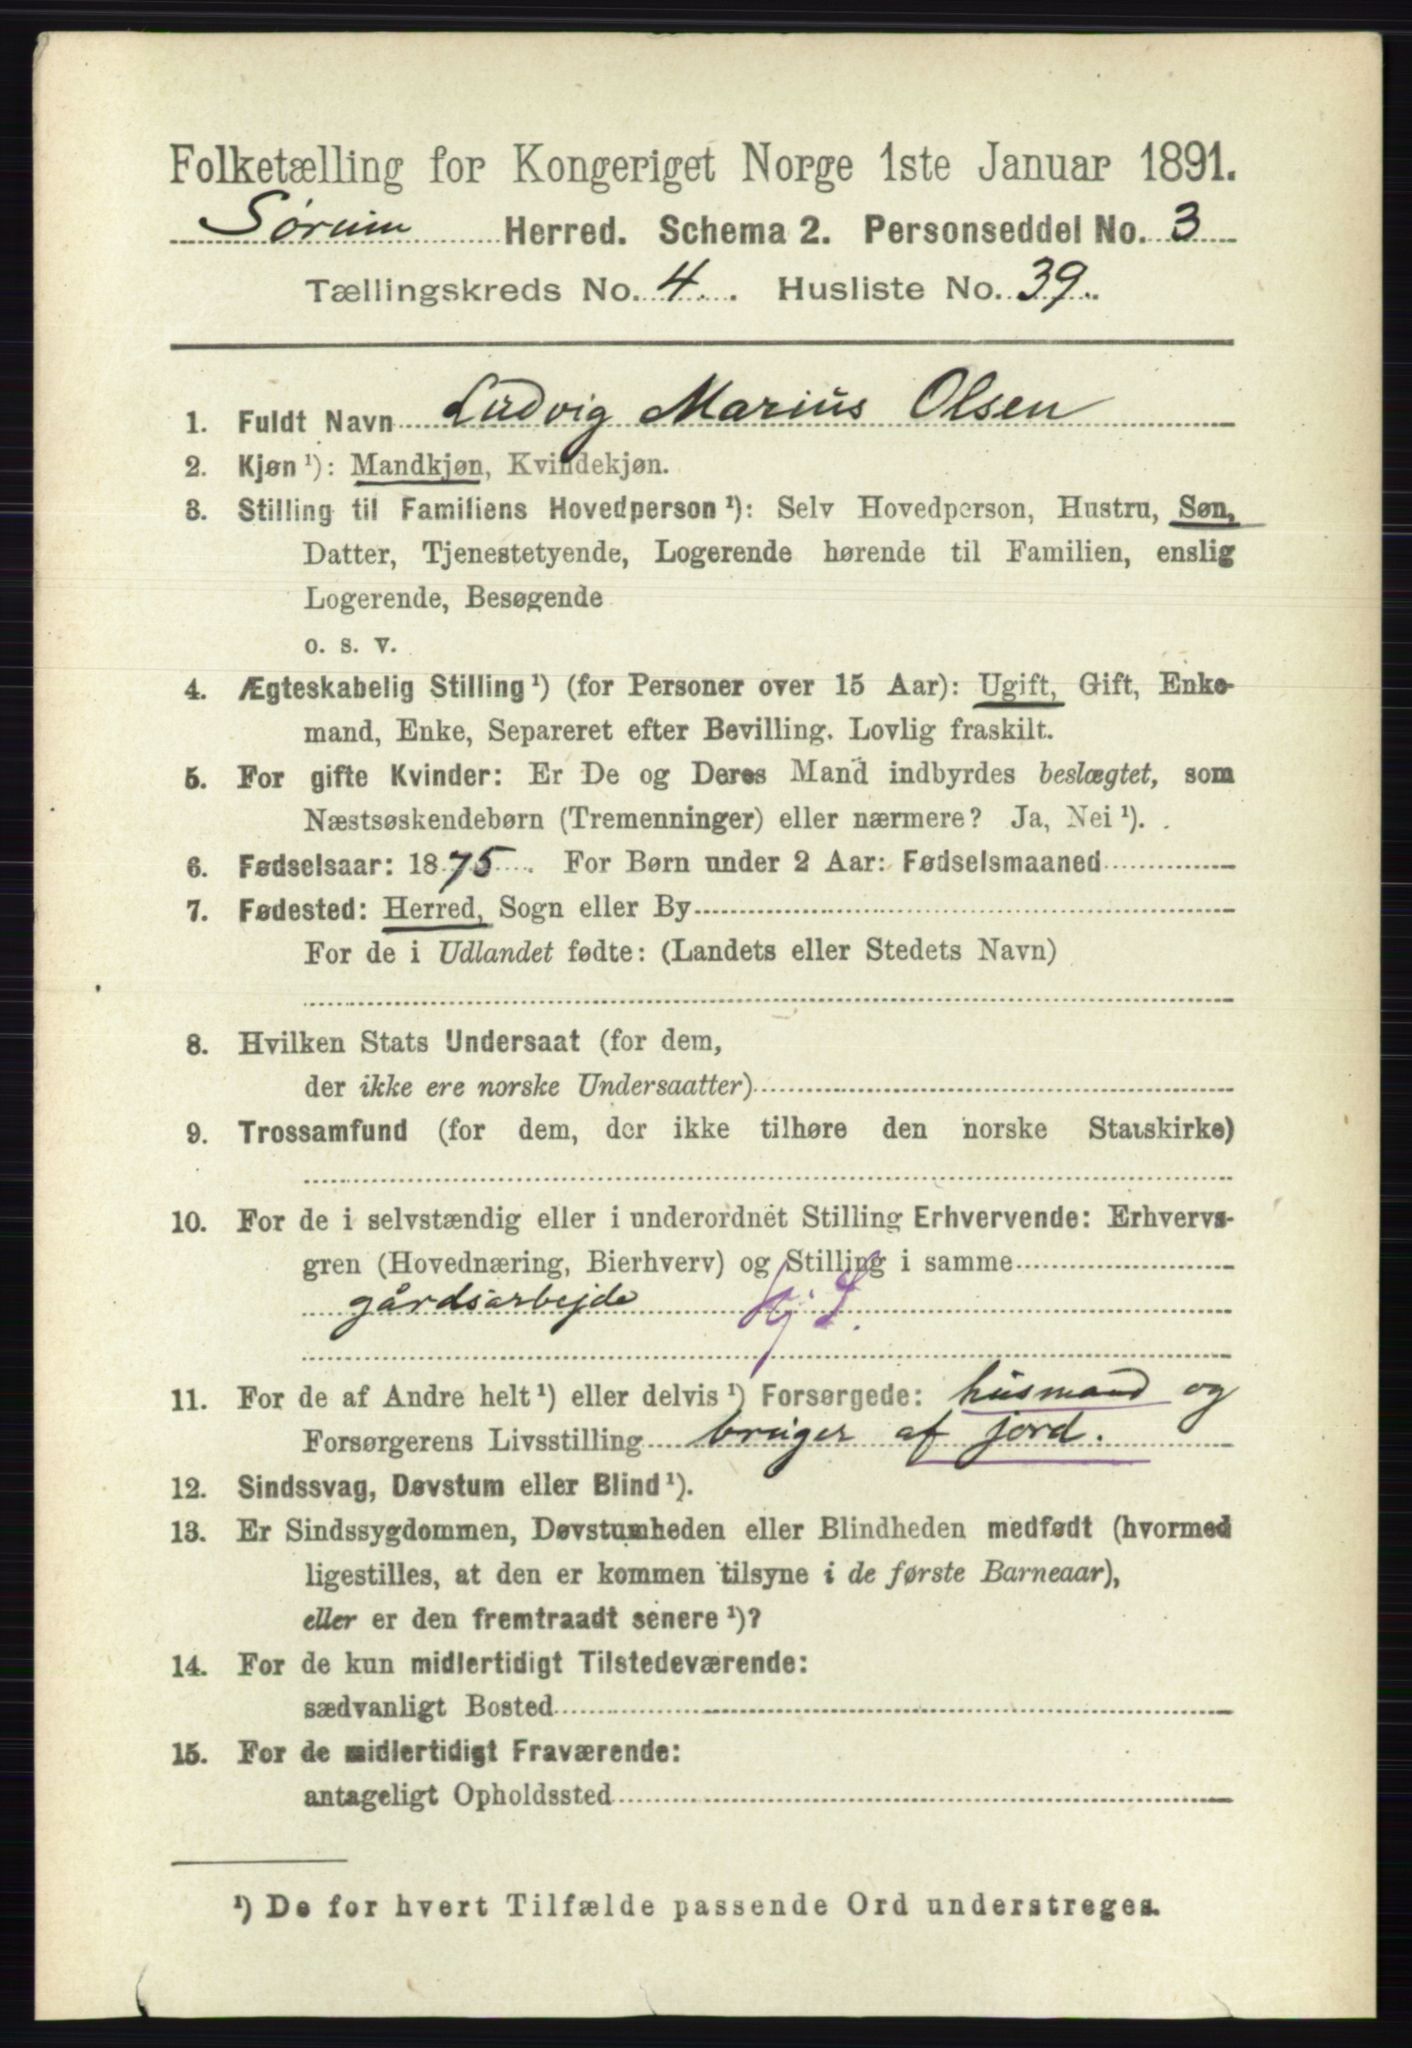 Folketælling for Kongeriget Norge 1ste Januar 1891.
Sørum Herred. Schema 2. Personseddel No. 3
Tællingskreds No. 4. Husliste No. 39.
1. Fuldt Navn Ludvig Marius Olsen
2. Kjøn¹): Mandkjøn, Kvindekjøn.
3. Stilling til Familiens Hovedperson¹): Selv Hovedperson, Hustru, Søn,
Datter, Tjenestetyende, Logerende hørende til Familien, enslig
Logerende, Besøgende
o. s. v.
4. Ægteskabelig Stilling¹) (for Personer over 15 Aar): Ugift, Gift, Enke-
mand, Enke, Separeret efter Bevilling. Lovlig fraskilt.
5. For gifte Kvinder: Er De og Deres Mand indbyrdes beslægtet, som
Næstsøskendebørn (Tremenninger) eller nærmere? Ja, Nei¹).
6. Fødselsaar: 1875. For Børn under 2 Aar: Fødselsmaaned
7. Fødested: Herred, Sogn eller By
For de i Udlandet fødte: (Landets eller Stedets Navn)
8. Hvilken Stats Undersaat (for dem,
der ikke ere norske Undersaatter)
9. Trossamfund (for dem, der ikke tilhøre den norske Statskirke)
10. For de i selvstændig eller i underordnet Stilling Erhvervende: Erhvervs-
gren (Hovednæring, Bierhverv) og Stilling i samme
gårdsarbejde
11. For de af Andre helt¹) eller delvis¹) Forsørgede: husmand og
Forsørgerens Livsstilling bruger af jord.
12. Sindssvag, Døvstum eller Blind¹).
13. Er Sindssygdommen, Døvstumheden eller Blindheden medfødt (hvormed
ligestilles, at den er kommen tilsyne i de første Barneaar),
eller er den fremtraadt senere¹)?
14. For de kun midlertidigt Tilstedeværende:
sædvanligt Bosted
15. For de midlertidigt Fraværende:
antageligt Opholdssted
¹) De for hvert Tilfælde passende Ord understreges.